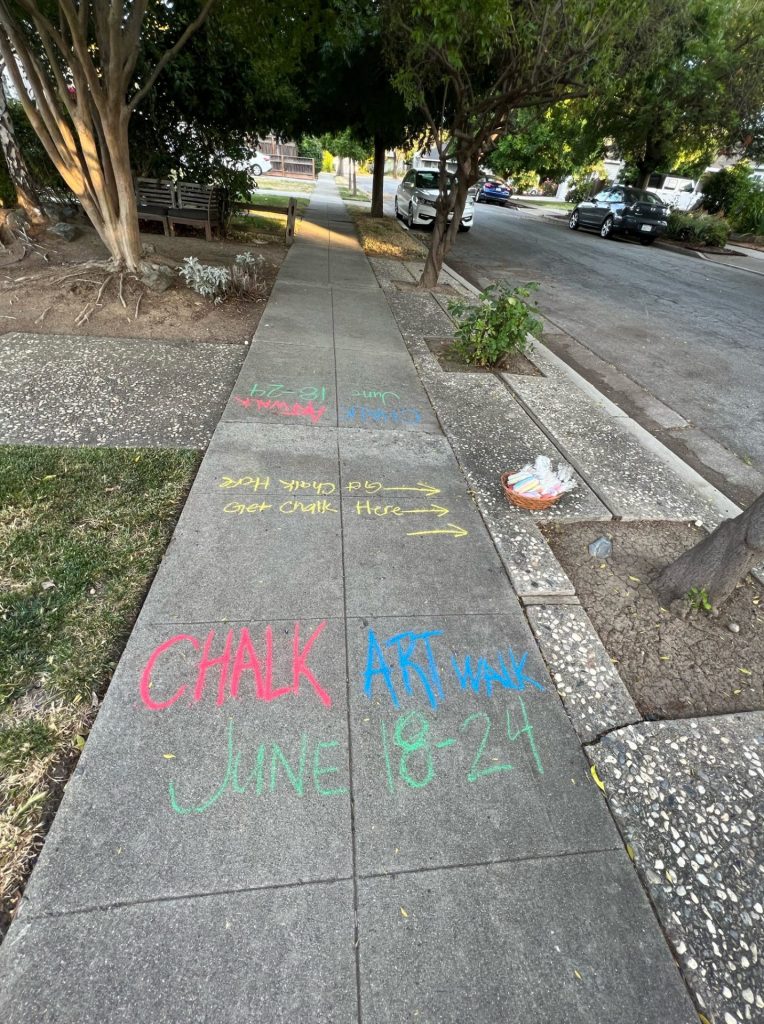 June 18-24
CHALK ARTWALK
Get Chalk Here
Get Chalk Here
CHALK ART WALK
JUNE 18-24